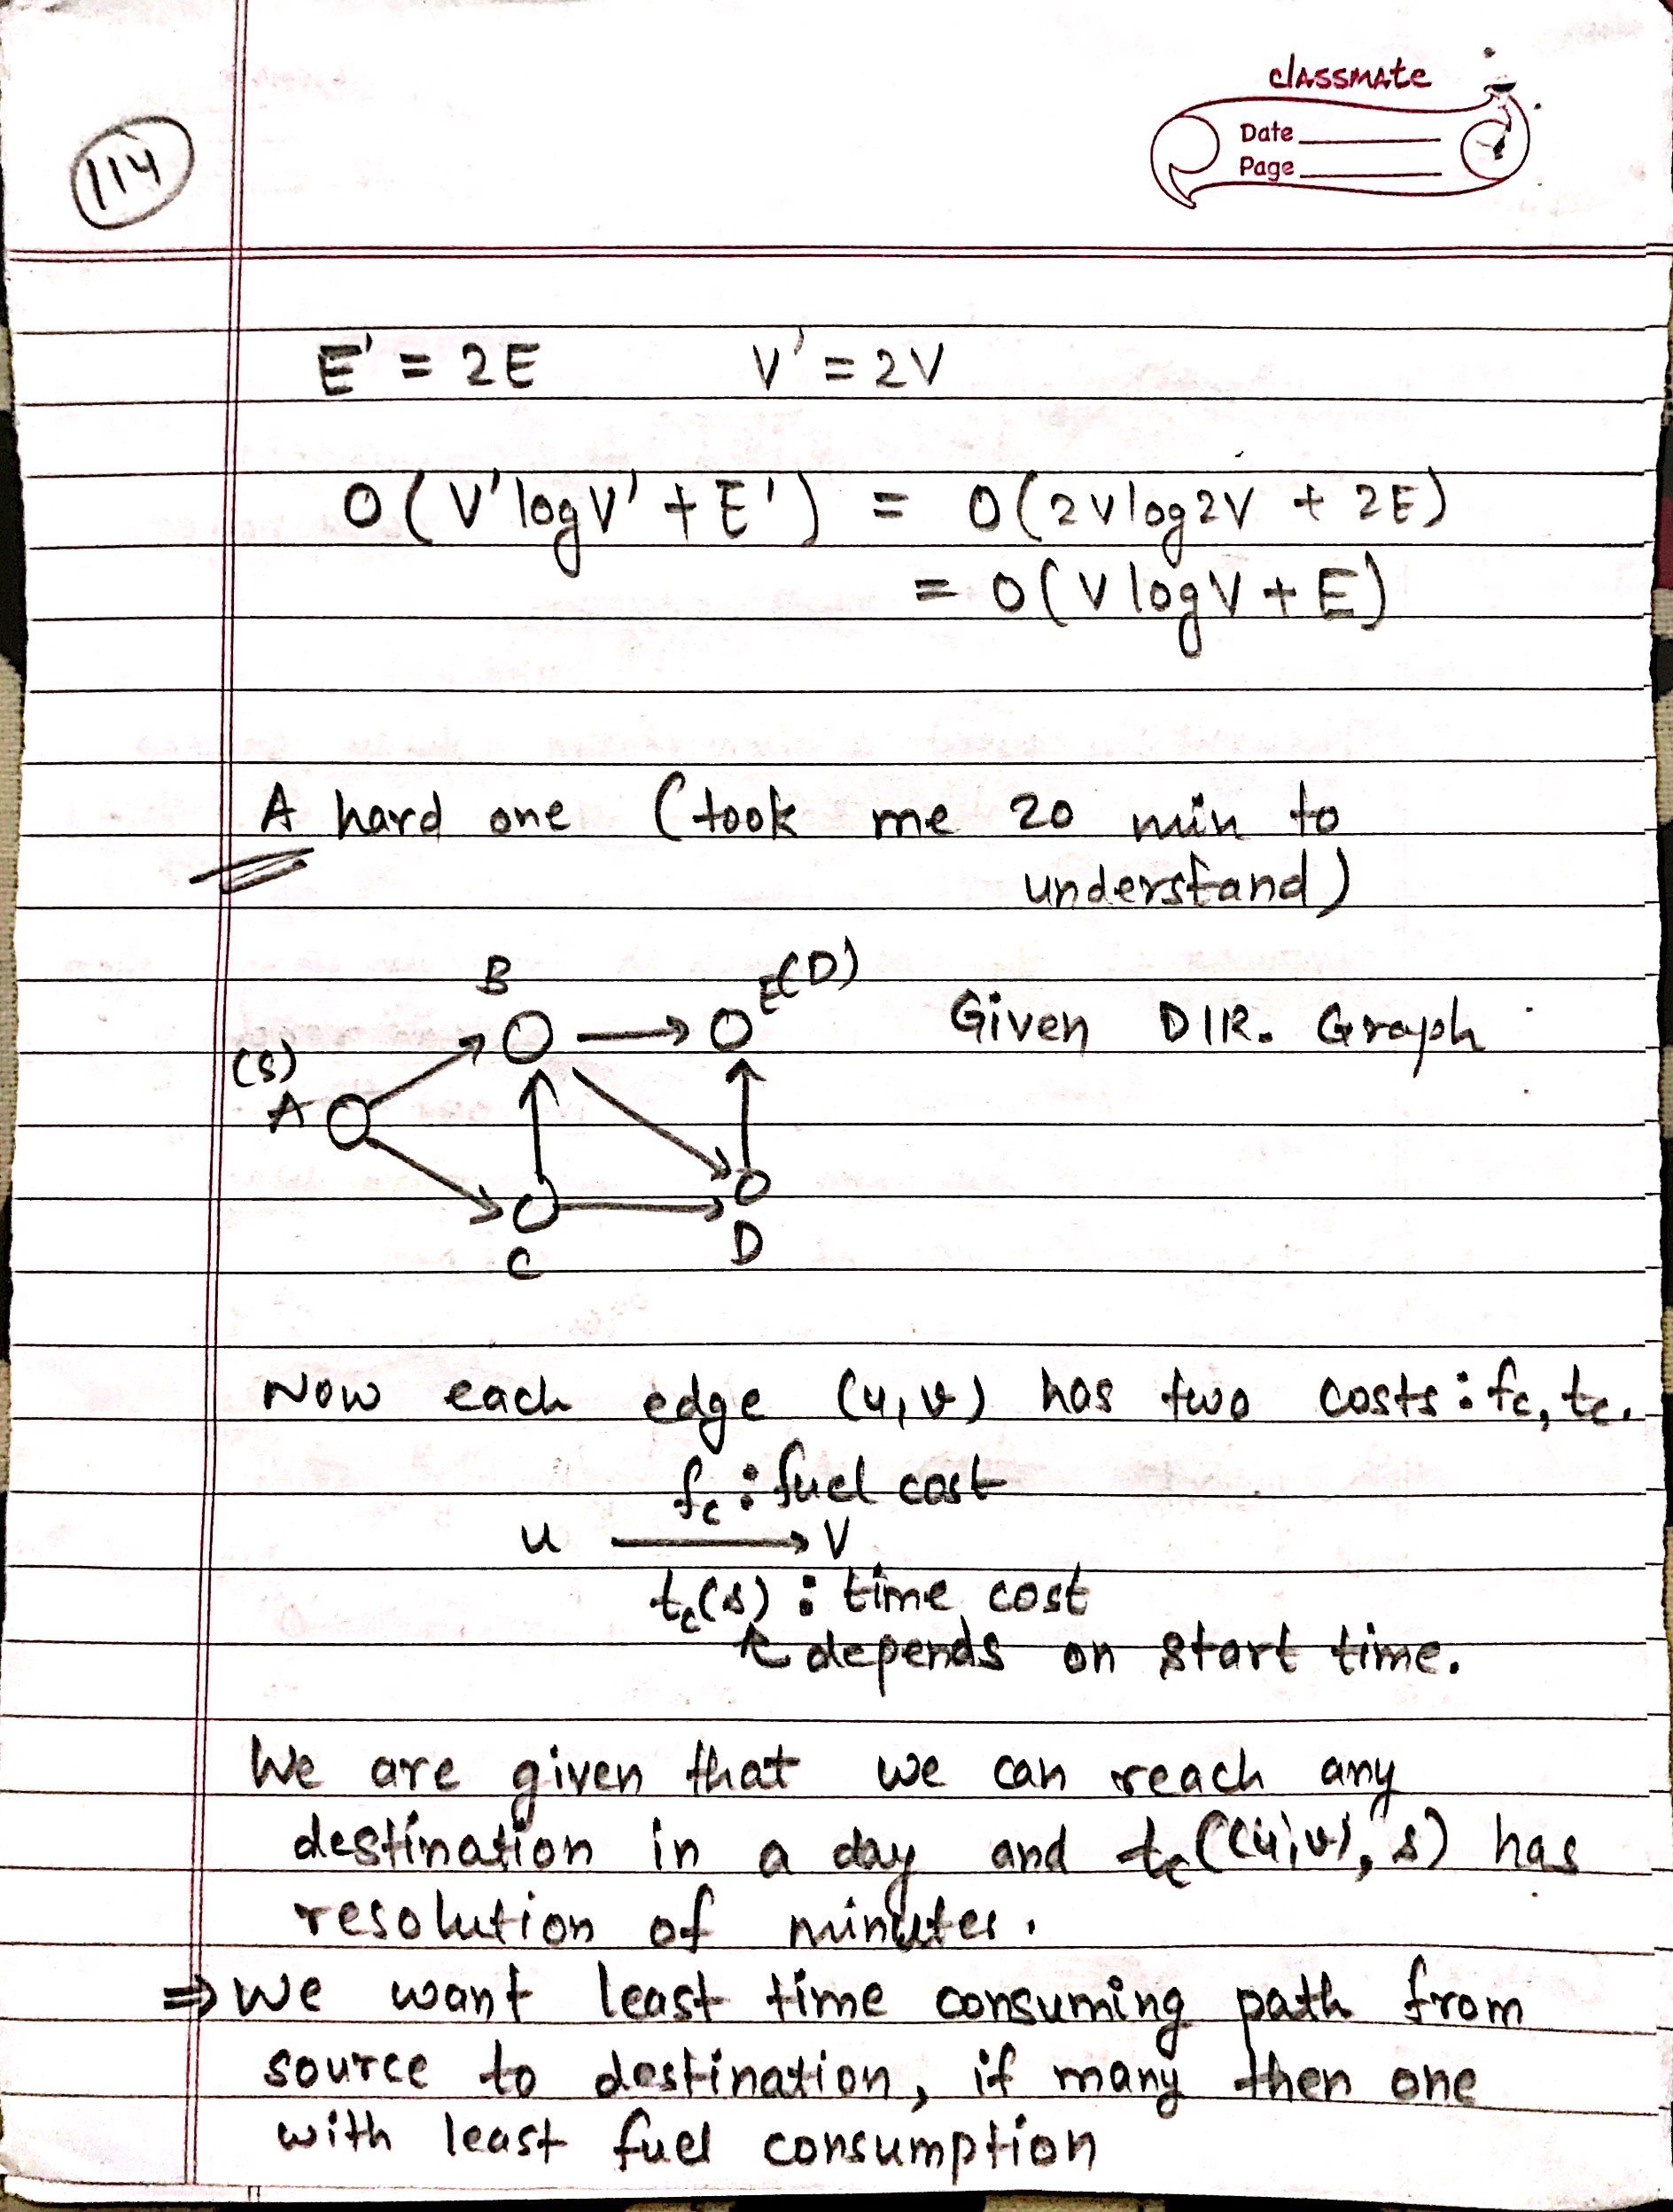 classmate
Date
Page
114
E' = 2E V' = 2V
O(V'logV' + E') = O(2Vlog2V + 2E)
= O(VlogV + E)
A hard one (took me 20 min to
understand)
B E(D)
Given DIR. Graph
(S)
A
C D
Now each edge (u,v) has two costs: fc, tc.
fc: fuel cost
u → V
tc(s): time cost
depends on start time.
We are given that we can reach any
destination in a day and tc((u,v), s) has
resolution of minutes.
⇒ We want least time consuming path from
source to destination, if many then one
with least fuel consumption